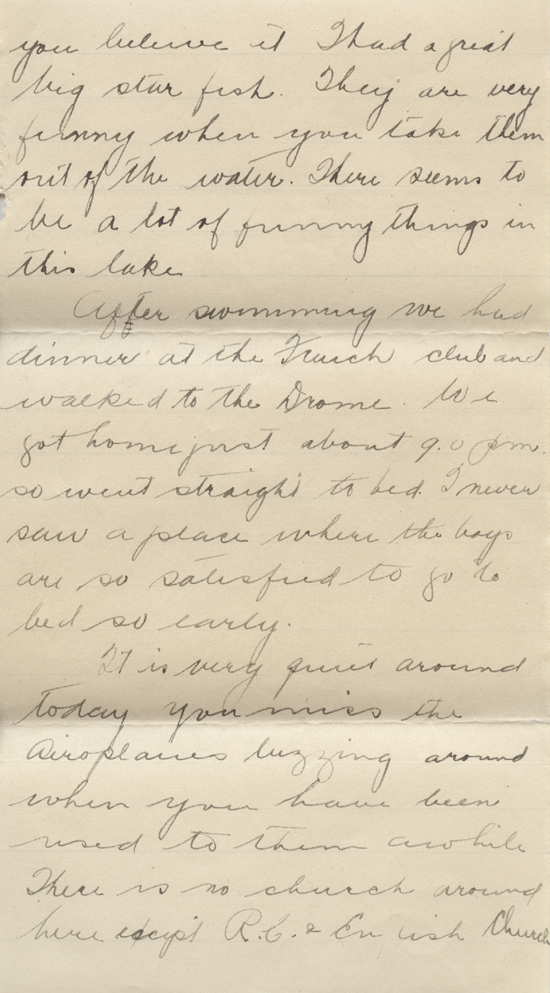 you beleive it I had a great
big star fish. They are very
funny when you take them
out of the water. There seems to
be a lot of funny things in
this lake
After swimming we had
dinner at the French club and
walked to the Drome. We
got home just about 9.0 pm.
so went straight to bed. I never
saw a place where the boys
are so satisfied to go to
bed so early.
It is very quiet around
today you miss the
Aeroplanes buzzing around
when you have been
used to them awhile
There is no church around
here except R.C. & En ish Church